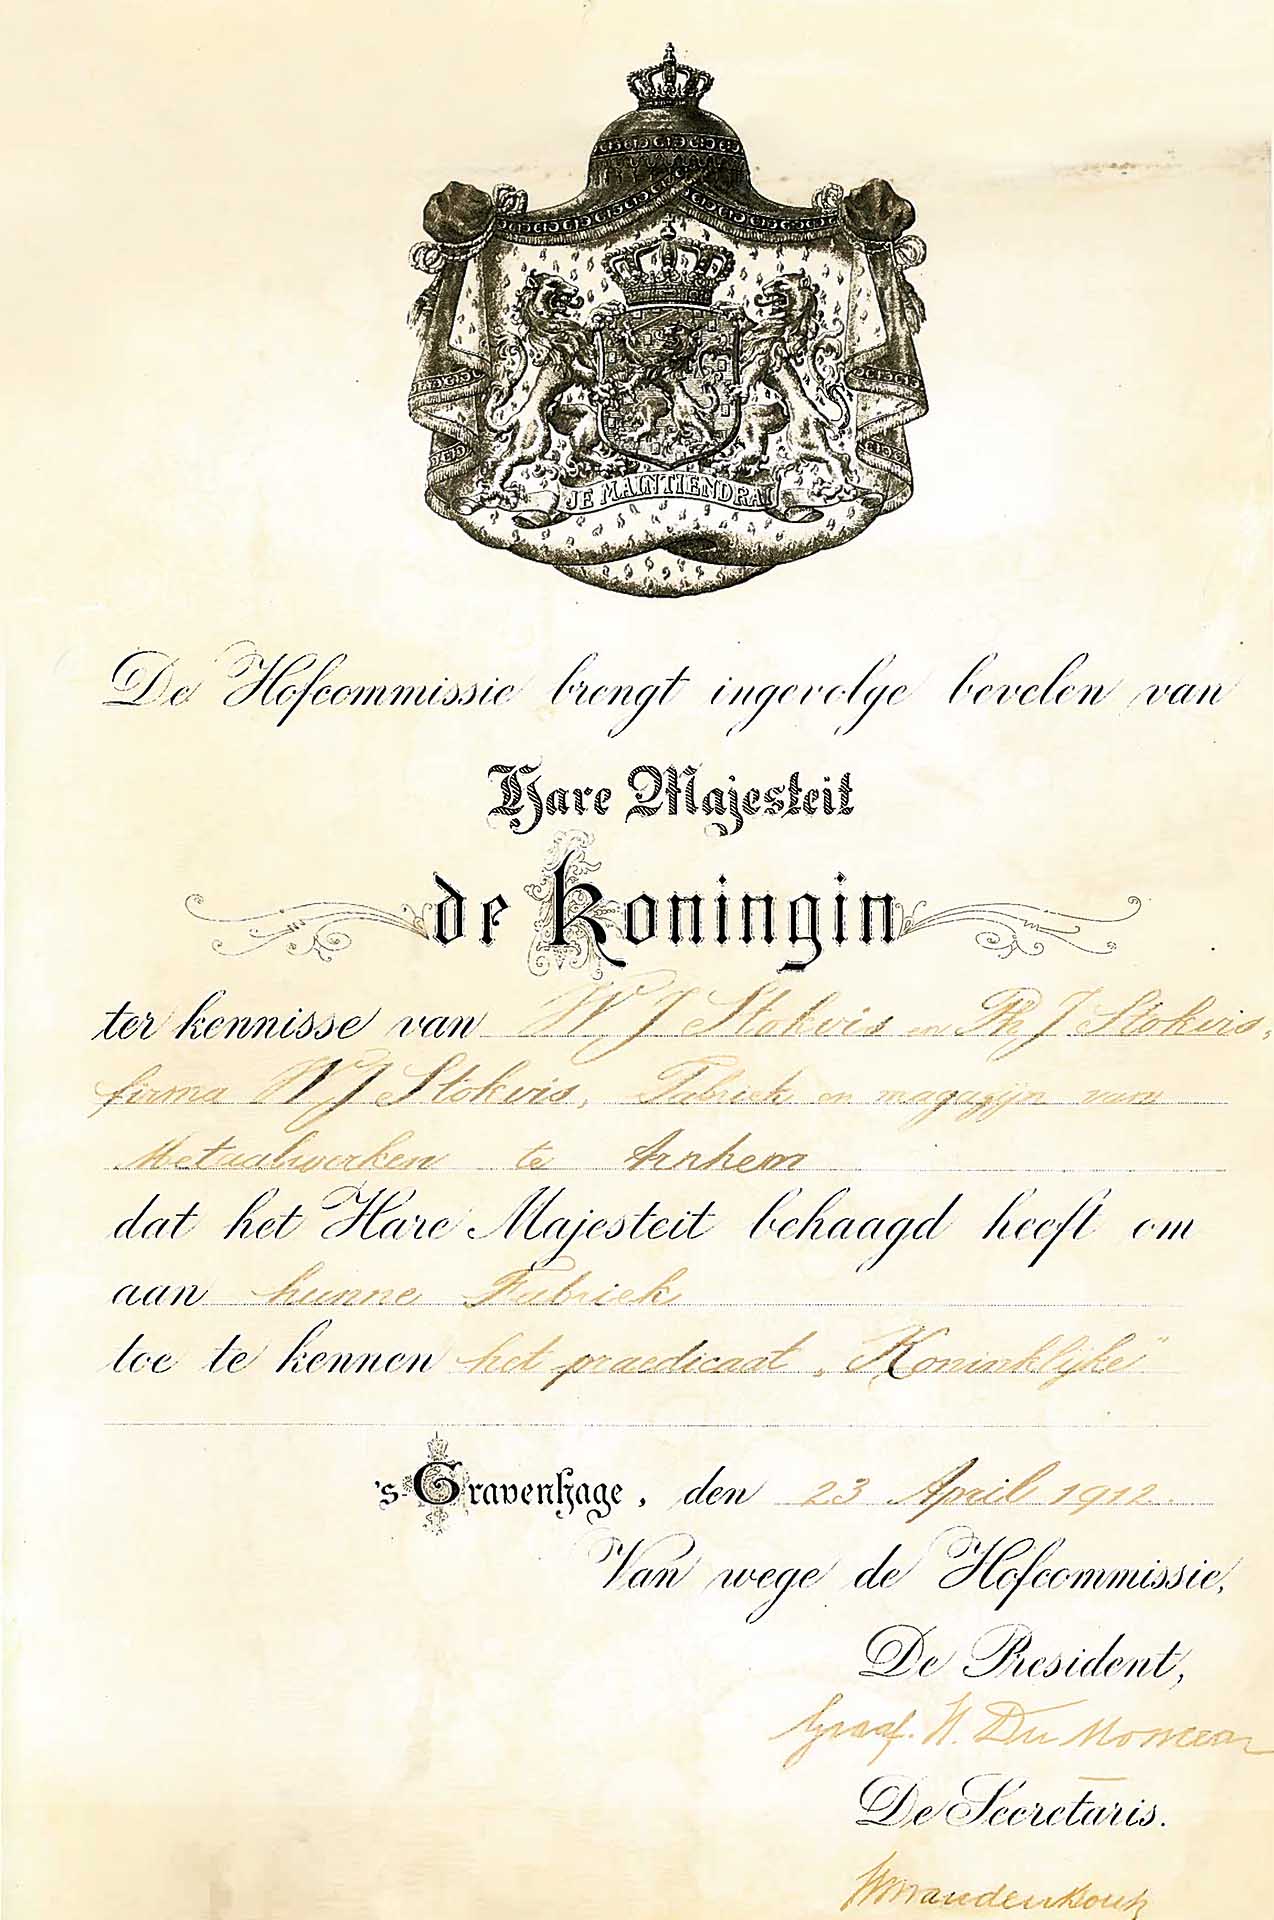 JE MAINTIENDRAI
De Hofcommissie brengt ingevolge bevelen van
Hare Majesteit
de Koningin
ter kennisse van W J Stokvis en Ph J Stokvis,
firma W J Stokvis, Fabriek en magazijn van
Metaalwerken te Arnhem
dat het Hare Majesteit behaagd heeft om
aan hunne Fabriek
toe te kennen het praedicaat „Koninklijke”
's Gravenhage, den 23 April 1912.
Van wege de Hofcommissie,
De President,
Graaf. H. Du Monceau
De Secretaris.